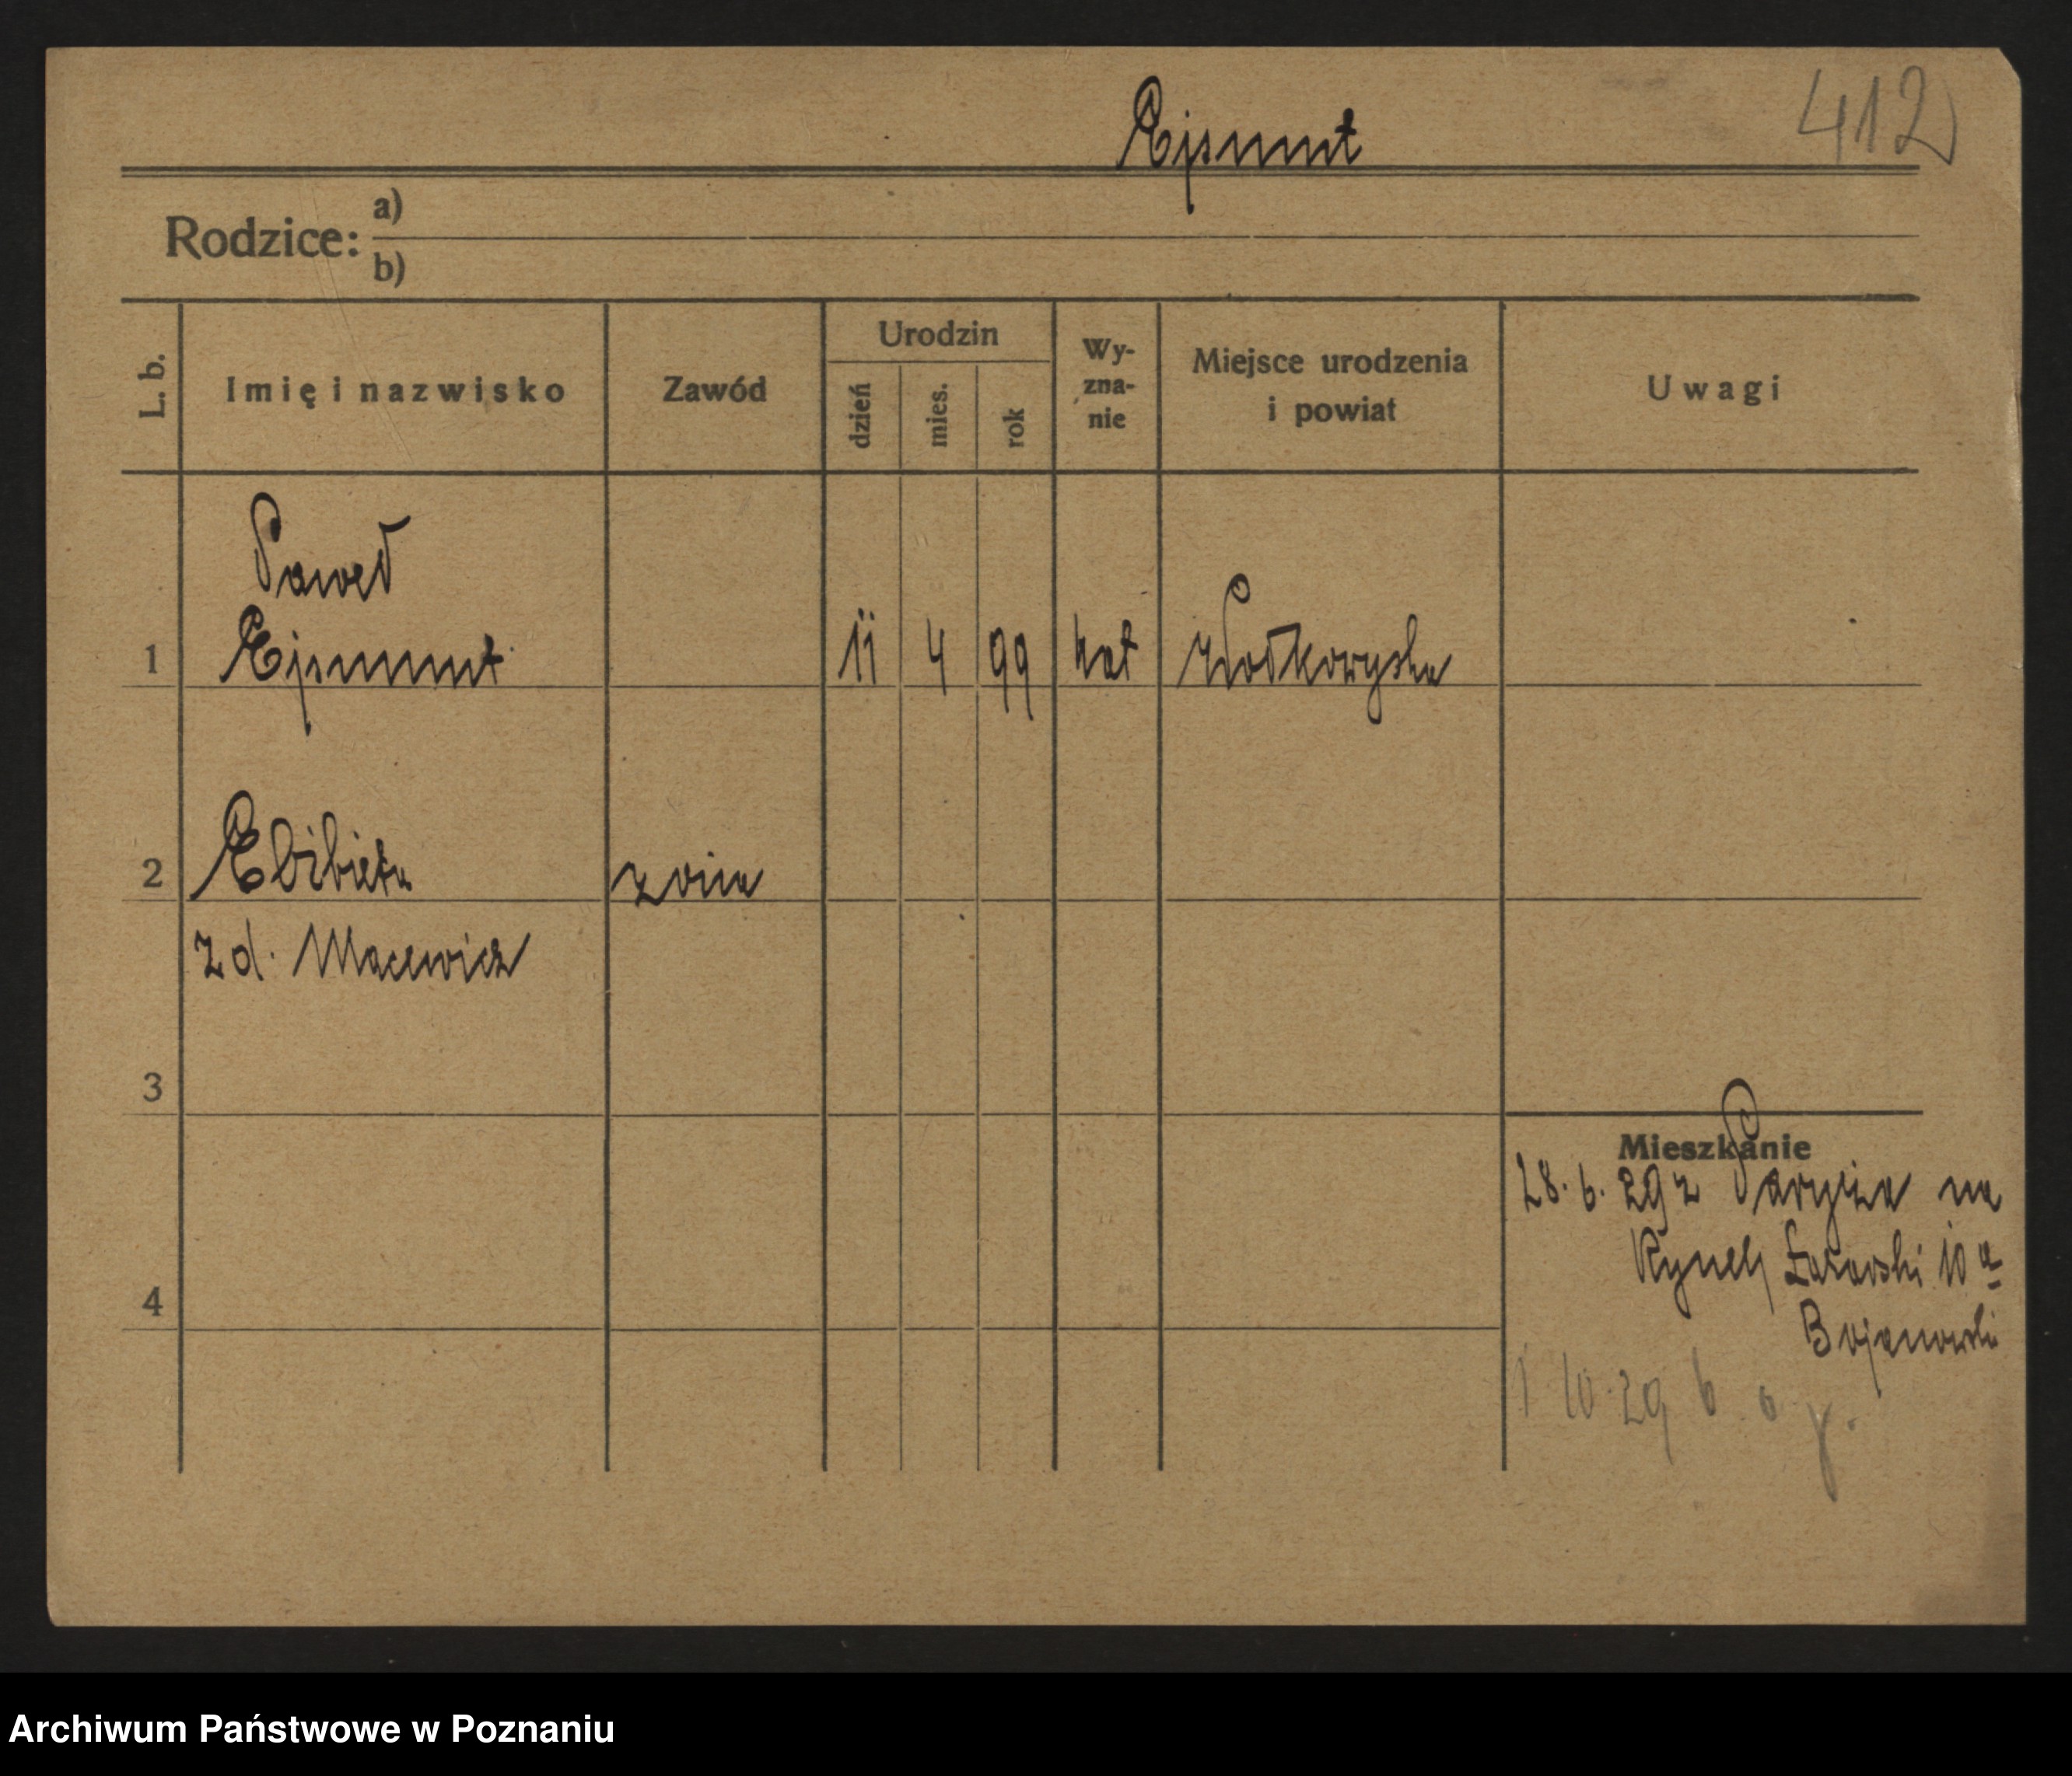 Ejsmont
412
Rodzice:
a)
b)
L. b.
Imię i nazwisko
Zawód
Urodzin
dzień
mies.
rok
Wy-
zna-
nie
Miejsce urodzenia
i powiat
Uwagi
Paweł
1 Ejsmunt 11 4 99 kat Wołkowyska
2 Elżbieta żona
zd. Macewicz
3
Mieszkanie
28. 6. 29 z Paryża na
Rynek Łazarski 10 a
Bojanowski
4
1 10 29
Archiwum Państwowe w Poznaniu